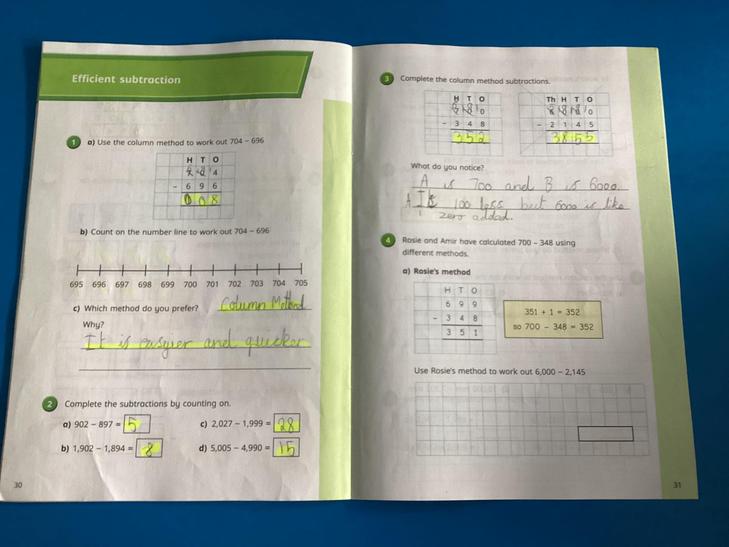 Efficient subtraction
1 a) Use the column method to work out 704 – 696
H T O
4
– 6 9 6
0 0 8
b) Count on the number line to work out 704 – 696
695 696 697 698 699 700 701 702 703 704 705
c) Which method do you prefer? Column Method
Why?
It is easyer and quicker
2 Complete the subtractions by counting on.
a) 902 – 897 = 5
c) 2,027 – 1,999 = 28
b) 1,902 – 1,894 = 8
d) 5,005 – 4,990 = 15
30
3 Complete the column method subtractions.
H T O
0
– 3 4 8
3 5 2
Th H T O
0
– 2 1 4 5
3 8 5 5
What do you notice?
A is 700 and B is 6000.
100 less but 6000 is like
zero added.
4 Rosie and Amir have calculated 700 – 348 using
different methods.
a) Rosie's method
H T O
6 9 9
– 3 4 8
3 5 1
351 + 1 = 352
so 700 – 348 = 352
Use Rosie's method to work out 6,000 – 2,145
31